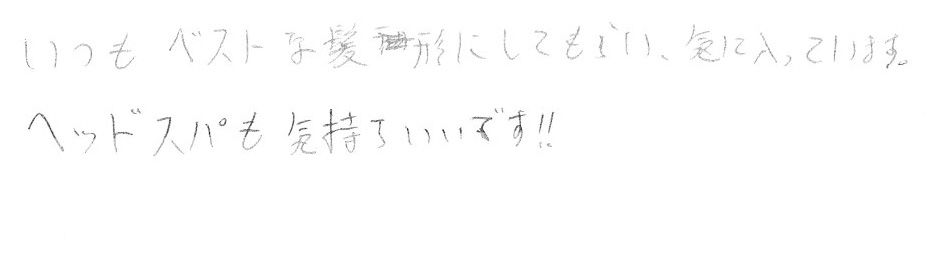 いつもベストな髪形にしてもらい、気に入っています。
ヘッドスパも気持ちいいです!!